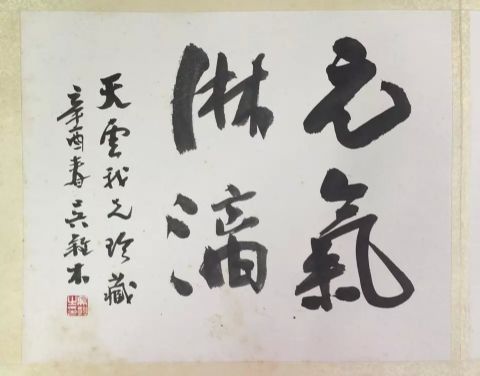 元氣
淋漓
天雲我兄珍藏
辛酉春吳䍩木